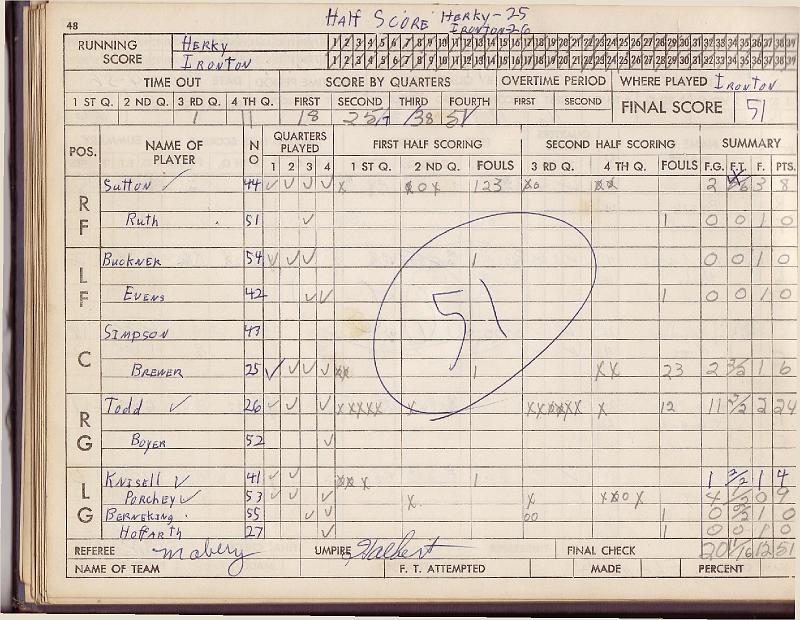 48
HALF SCORE HERKY-25
IRONTON-26
RUNNING SCORE HERKY 1 2 3 4 5 6 7 8 9 10 11 12 13 14 15 16 17 18 19 20 21 22 23 24 25 26 27 28 29 30 31 32 33 34 35 36 37 38 39
IRONTON 1 2 3 4 5 6 7 8 9 10 11 12 13 14 15 16 17 18 19 20 21 22 23 24 25 26 27 28 29 30 31 32 33 34 35 36 37 38 39
TIME OUT SCORE BY QUARTERS OVERTIME PERIOD WHERE PLAYED IRONTON
1 ST Q. 2 ND Q. 3 RD Q. 4 TH Q. FIRST SECOND THIRD FOURTH FIRST SECOND FINAL SCORE 51
1 11 18 25 38 51
POS. NAME OF PLAYER NO QUARTERS PLAYED FIRST HALF SCORING SECOND HALF SCORING SUMMARY
1 2 3 4 1 ST Q. 2 ND Q. FOULS 3 RD Q. 4 TH Q. FOULS F.G. F.T. F. PTS.
RF SUTTON ✓ 44 ✓ ✓ ✓ ✓ x x o x 123 x o x x 2 3 8
RUTH 51 ✓ 1 0 0 1 0
LF BUCKNER 54 ✓ ✓ ✓ 1 0 0 1 0
EVENS 42 ✓ ✓ 1 0 0 1 0
C SIMPSON 43
BREWER 25 ✓ ✓ ✓ ✓ x x 1 x x 23 2 1 6
51
RG Todd ✓ 26 ✓ ✓ ✓ x x x x x x x x x x x x x 12 11 2/2 2 24
BOYER 52 ✓
LG KNISELL ✓ 41 ✓ ✓ x x x 1 1 2/2 1 4
PORCHEY ✓ 53 ✓ ✓ ✓ x x x x o x 4 1/2 0 9
BERNEKING 55 ✓ ✓ o o 1 0 0/2 1 0
HOFFARTH 27 ✓ 1 0 0 1 0
REFEREE Mabery UMPIRE Halbert FINAL CHECK 20 11/16 12 51
NAME OF TEAM F. T. ATTEMPTED MADE PERCENT